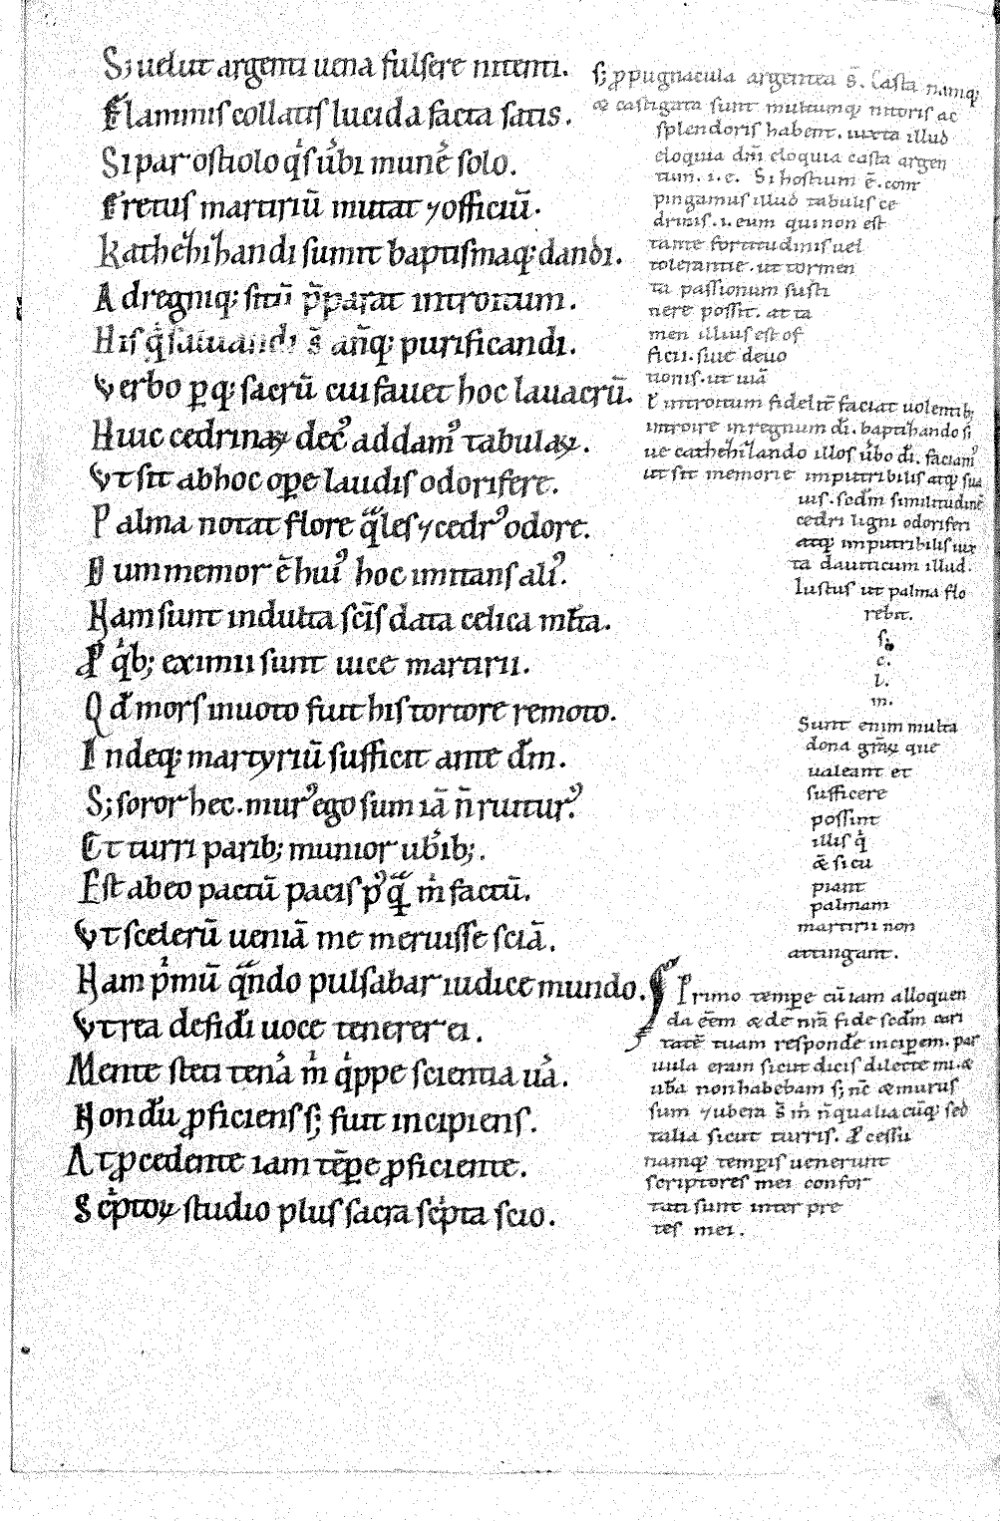 S; uelut argenti uena fulsere nitenti.
Flammis collatis lucida facta satis.
Si par ostiolo q̇s ub̓i mune̓ solo.
Fretus martiriū mutat ⁊ officiū.
Kathehihandi sumit baptismaq; dandi.
Ad regniq; sitū p̄parat introitum.
His q̇ saluandi s̄ an̄q; purificandi.
Verbo ꝑq; sacrū cui fauet hoc lauacrū.
Huic cedrinaꝝ dec᾽ addam᾽ tabulaꝝ.
Vt sit ab hoc oꝑe laudis odorifere.
Palma notat flore q̄les ⁊ cedr᾽ odore.
Dum memor ē hui᾽ hoc imitans ali᾽.
Nam sunt indulta sc̄is data celica ml̄ta.
ꝓ q̇b; eximii sunt uice martirii.
Qd̄ mors in uoto fuit his tortore remoto.
Indeq; martyriū sufficit ante dm̄.
S; soror hec. mur᾽ ego sum iā n̄ ruitur᾽
Et turri parib; munior ub̓ib;.
Est ab eo pactū pacis p᾽q̄ ṁ factū.
Vt scelerū ueniā me meruisse sciā.
Nam ṗmū q̄ndo pulsabar iudice mundo.
Vt rea desidi uoce tenerer ei.
Mente steti tena̓ ṁ q̇ppe scientia ua̓.
Non du̅ ꝓficiens s; fuit incipiens.
At ꝓcedente iam tēꝑe ꝓficiente.
Sc̓ptoꝝ studio plus sacra sc̓pta scio.
s; ꝓpugnacula argentea s̄. Casta namq;
& castigata sunt multumq; nitoris ac
splendoris habent. iuxta illud
eloquia dm̄i eloquia casta argen
tum. i.e. Si hostium ē. com
pingamus illud tabulis ce
drinis. i. eum qui non est
tante fortitudinis uel
tolerantie. ut tormen
ta passionum susti
nere possit. at ta
men illius est of
ficii. siue deuo
tionis. ut uiā
& introitum fidelit̄ faciat uolentib;
introire in regnum di̅. baptihando si
ue cathehihando illos ub̓o di̅. faciam᾽
ut sit memorie imputribilis atq; sua
uis. sedm̄ similitudinē
cedri ligni odoriferi
atq; imputribilis iux
ta dauiticum illud.
Iustus ut palma flo
rebit.
s;
c.
l.
m.
Sunt enim multa
dona gr̄aꝝ que
ualeant et
sufficere
possint
illis q̇
& si cu
piant
palmam
martirii non
attingant.
Primo tempe cū iam alloquen
da eēm & de nr̄a fide sedm̄ cari
tatē tuam respondē inciꝑem. par
uula eram sicut dicis dilecte mi. &
ub̓a non habebam s; nc̄ & murus
sum ⁊ ubera s̄ ṁ n̄ qualiacūq; sed
talia sicut turris. ꝓcessu
namq; temꝑis uenerunt
scriptores mei confor
tati sunt inter pre
tes mei.